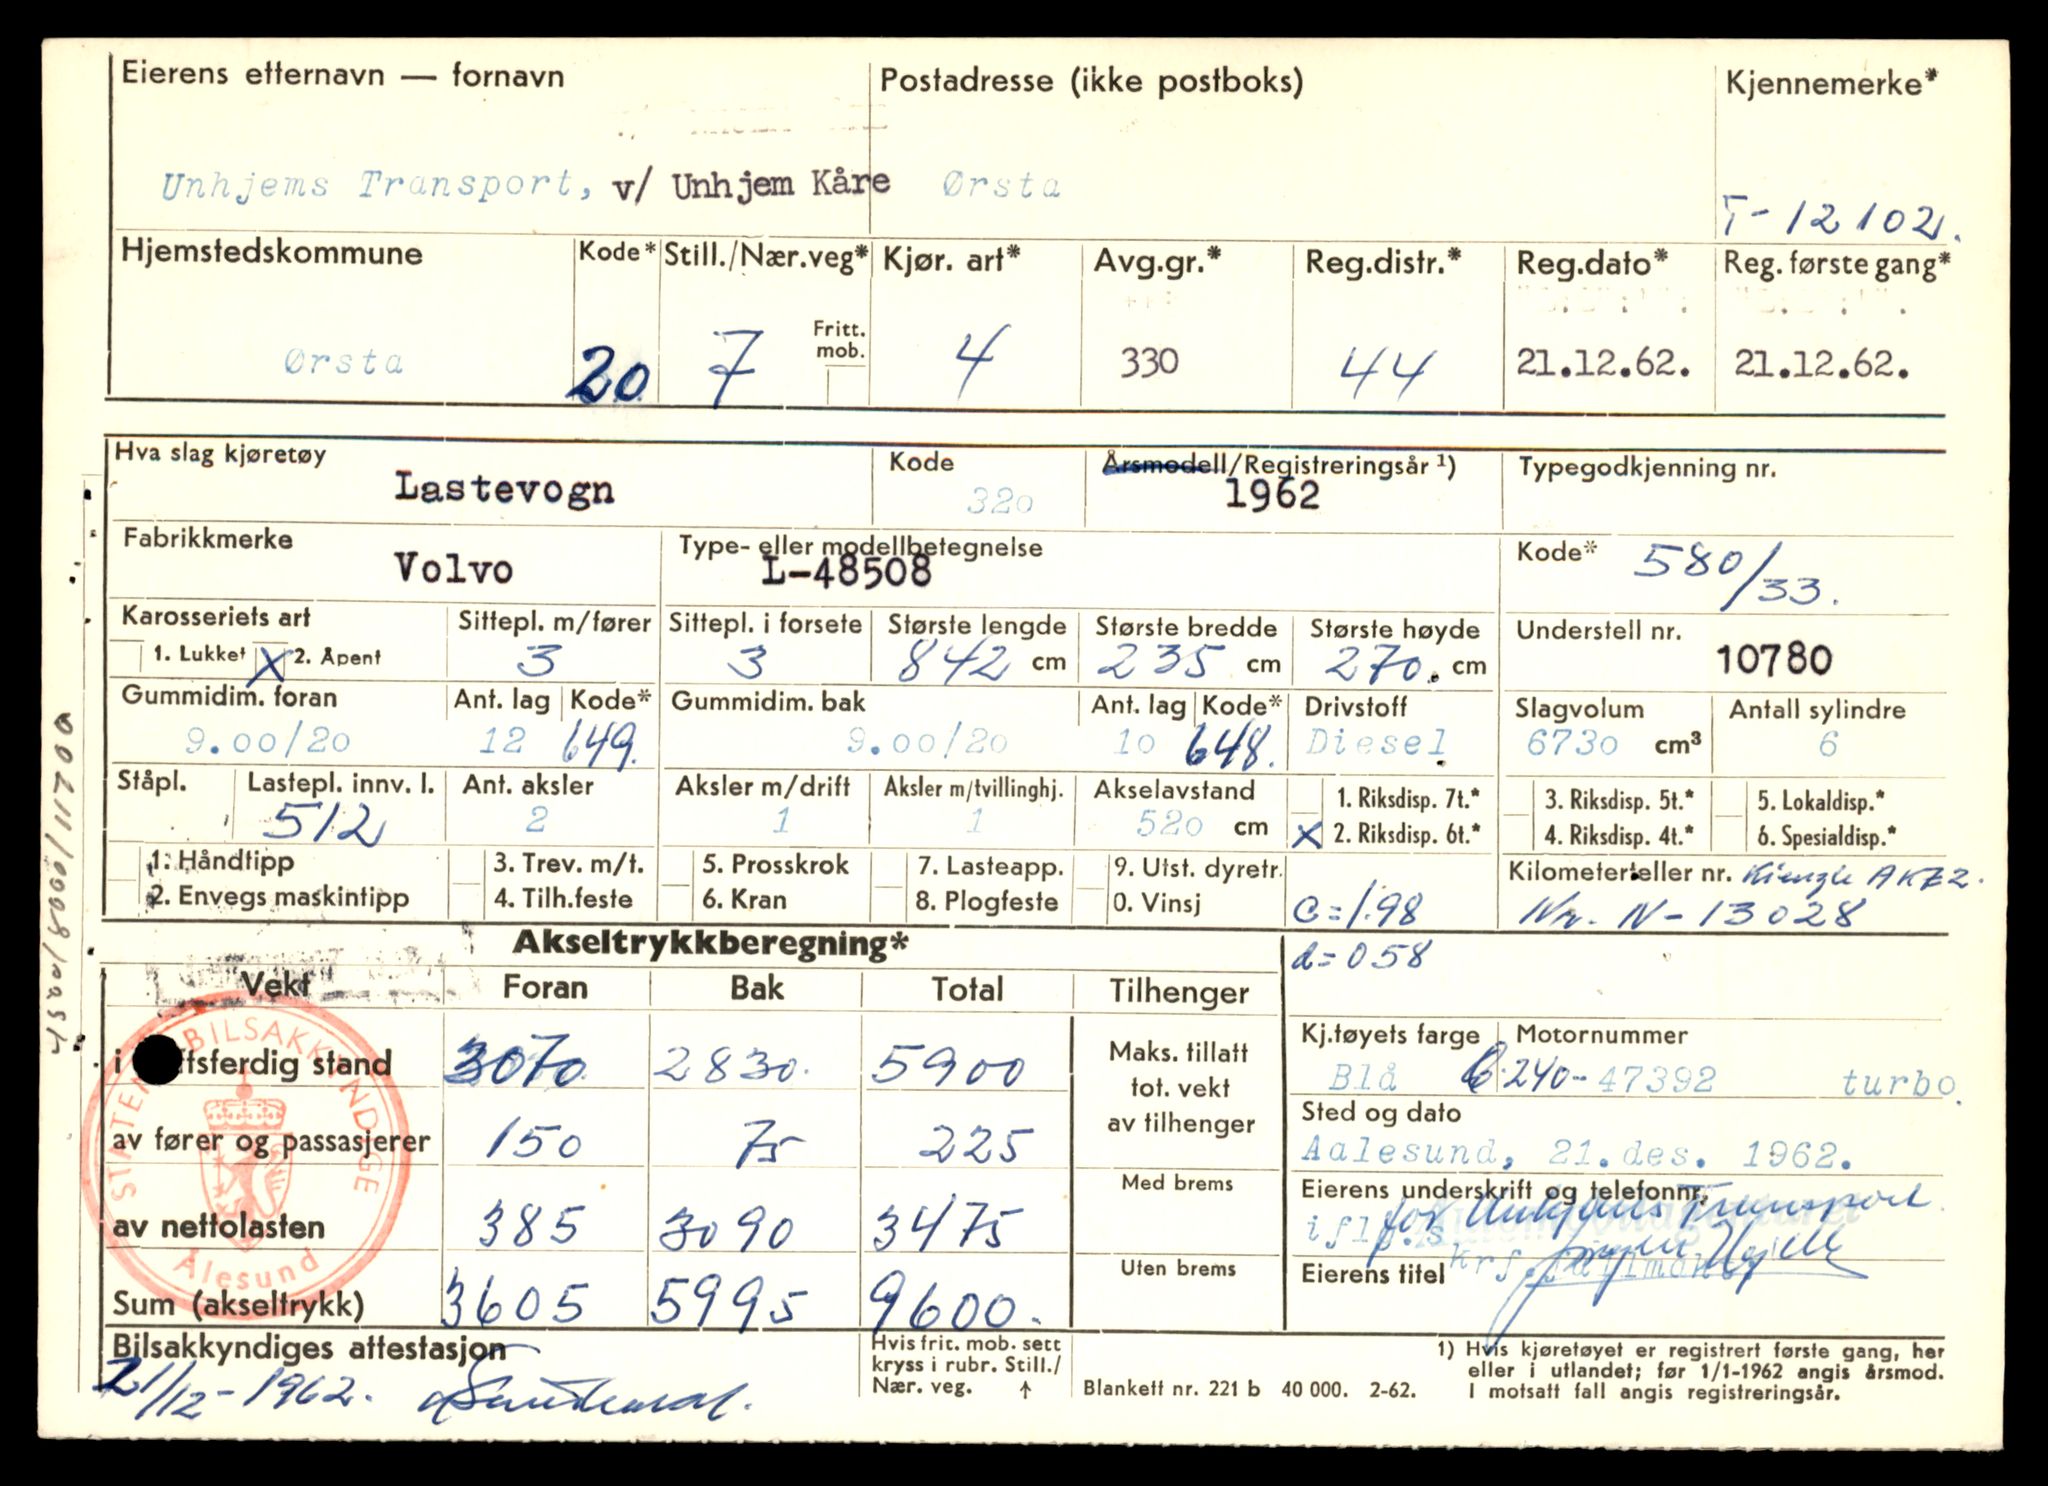 Eierens etternavn — fornavn Postadresse (ikke postboks) Kjennemerke*
Unhjems Transport, v/ Unhjem Kåre Ørsta T-12102.
Hjemstedskommune Kode* Still./Nær.veg* Kjør. art* Avg.gr.* Reg.distr.* Reg.dato* Reg. første gang*
Fritt. mob.
Ørsta 20 7 4 330 44 21.12.62. 21.12.62.
Hva slag kjøretøy Kode Årsmodell/Registreringsår ¹) Typegodkjenning nr.
Lastevogn 320 1962
Fabrikkmerke Type- eller modellbetegnelse Kode* 580/33.
Volvo L-48508
Karosseriets art Sittepl. m/fører Sittepl. i forsete Største lengde Største bredde Største høyde Understell nr.
1. Lukket X 2. Åpent 3 3 842 cm 235 cm 270. cm 10780
Gummidim. foran Ant. lag Kode* Gummidim. bak Ant. lag Kode* Drivstoff Slagvolum Antall sylindre
9.00/20 12 649. 9.00/20 10 648. Diesel. 6730 cm³ 6
Ståpl. Lastepl. innv. l. Ant. aksler Aksler m/drift Aksler m/tvillinghj. Akselavstand 1. Riksdisp. 7t.* 3. Riksdisp. 5t.* 5. Lokaldisp.*
512 2 1 1 520 cm X 2. Riksdisp. 6t.* 4. Riksdisp. 4t.* 6. Spesialdisp.*
1. Håndtipp 3. Trev. m/t. 5. Prosskrok 7. Lasteapp. 9. Utst. dyretr. Kilometerteller nr. Kienzle AKZ2.
2. Envegs maskintipp 4. Tilh.feste 6. Kran 8. Plogfeste 0. Vinsj c=1.98 Nr. N-13028
Akseltrykkberegning* d=058
Vekt Foran Bak Total Tilhenger
Kj.tøyets farge Motornummer
i ftsferdig stand 3070 2830. 5900 Maks. tillatt tot. vekt av tilhenger
Blå 240-47392 turbo.
Sted og dato
av fører og passasjerer 150 75 225
Aalesund, 21.des. 1962.
Med brems Eierens underskrift og telefonnr.
for Unhjems Transport
av nettolasten 385 3090 3475
iflg.
Uten brems Eierens titel
Sum (akseltrykk) 3605 5995 9600.
Bilsakkyndiges attestasjon
21/12-1962.
Hvis frit. mob. sett
kryss i rubr. Still./
Nær. veg. ↑
Blankett nr. 221 b 40 000. 2-62.
1) Hvis kjøretøyet er registrert første gang, her
eller i utlandet; før 1/1-1962 angis årsmod.
I motsatt fall angis registreringsår.
STATENS BILSAKKYNDIGE
Ålesund